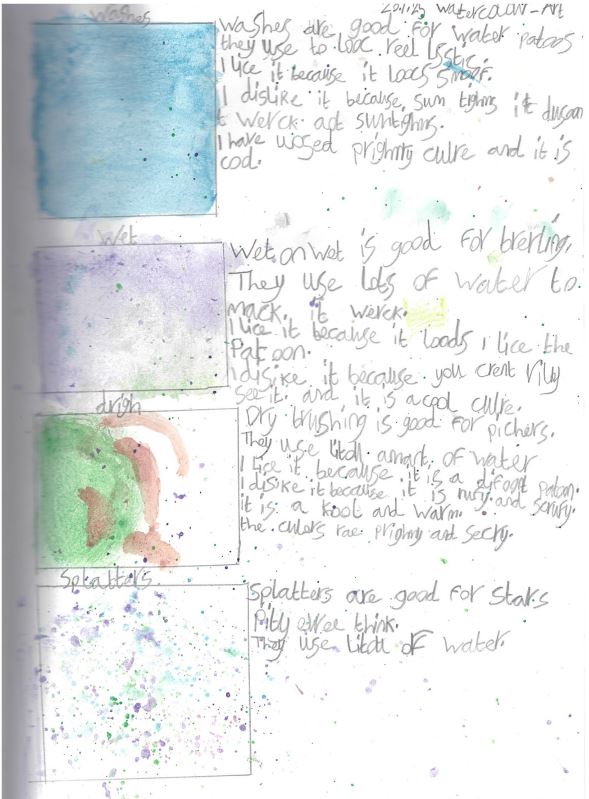 20.1.25 Watercolour - Art
Washes
Washes are good for water patoons
they use to looc reel listic.
I lice it because it loocs smoof.
I dislike it because sun tighms it
t werck. aot suntighms.
I have uosed prighmry culre and it is
cod.
Wet
Wet on Wet is good for
They use lots of water to
mack. it werck.
I lice it because it loocs I lice the
Patoon.
I dislike it because you crent rily
see it. and it is a cool culre.
drigh
Dry brushing is good for pichers.
They use litoll amart of water
I lice it because it is a difoont patoon.
I dislike it because it is and
it is a kool and warm.
the culors rae prighmry and secry.
Splatters
Splatters are good for stars
think.
They use litoll of water.